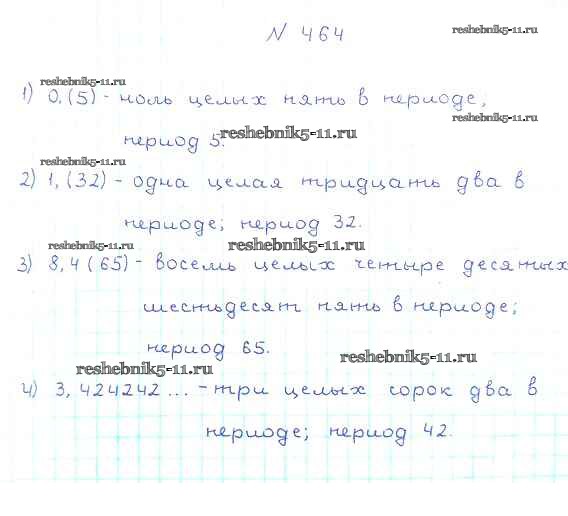 № 464
reshebnik5-11.ru
reshebnik5-11.ru
1) 0,(5) - ноль целых пять в периоде;
reshebnik5-11.ru
период 5.
reshebnik5-11.ru
reshebnik5-11.ru
2) 1,(32) - одна целая тридцать два в
периоде; период 32.
reshebnik5-11.ru
reshebnik5-11.ru
3) 8,4(65) - восемь целых четыре десятых
шестьдесят пять в периоде;
период 65.
reshebnik5-11.ru
reshebnik5-11.ru
4) 3,424242... - три целых сорок два в
периоде; период 42.